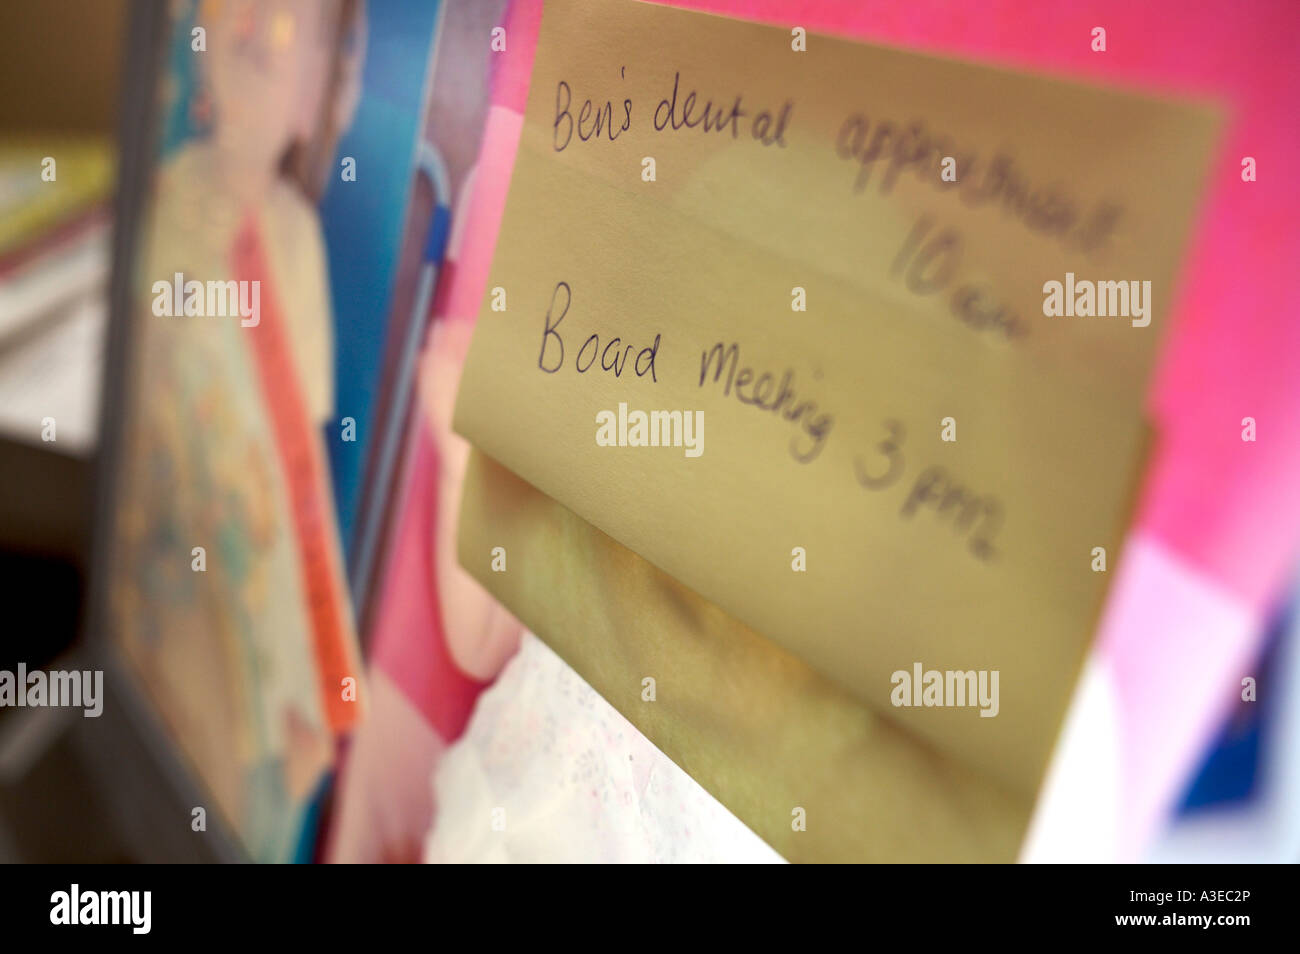 Ben's dental appointment
10am
Board Meeting 3pm
alamy
alamy
alamy
alamy
alamy
alamy
Image ID: A3EC2P
www.alamy.com